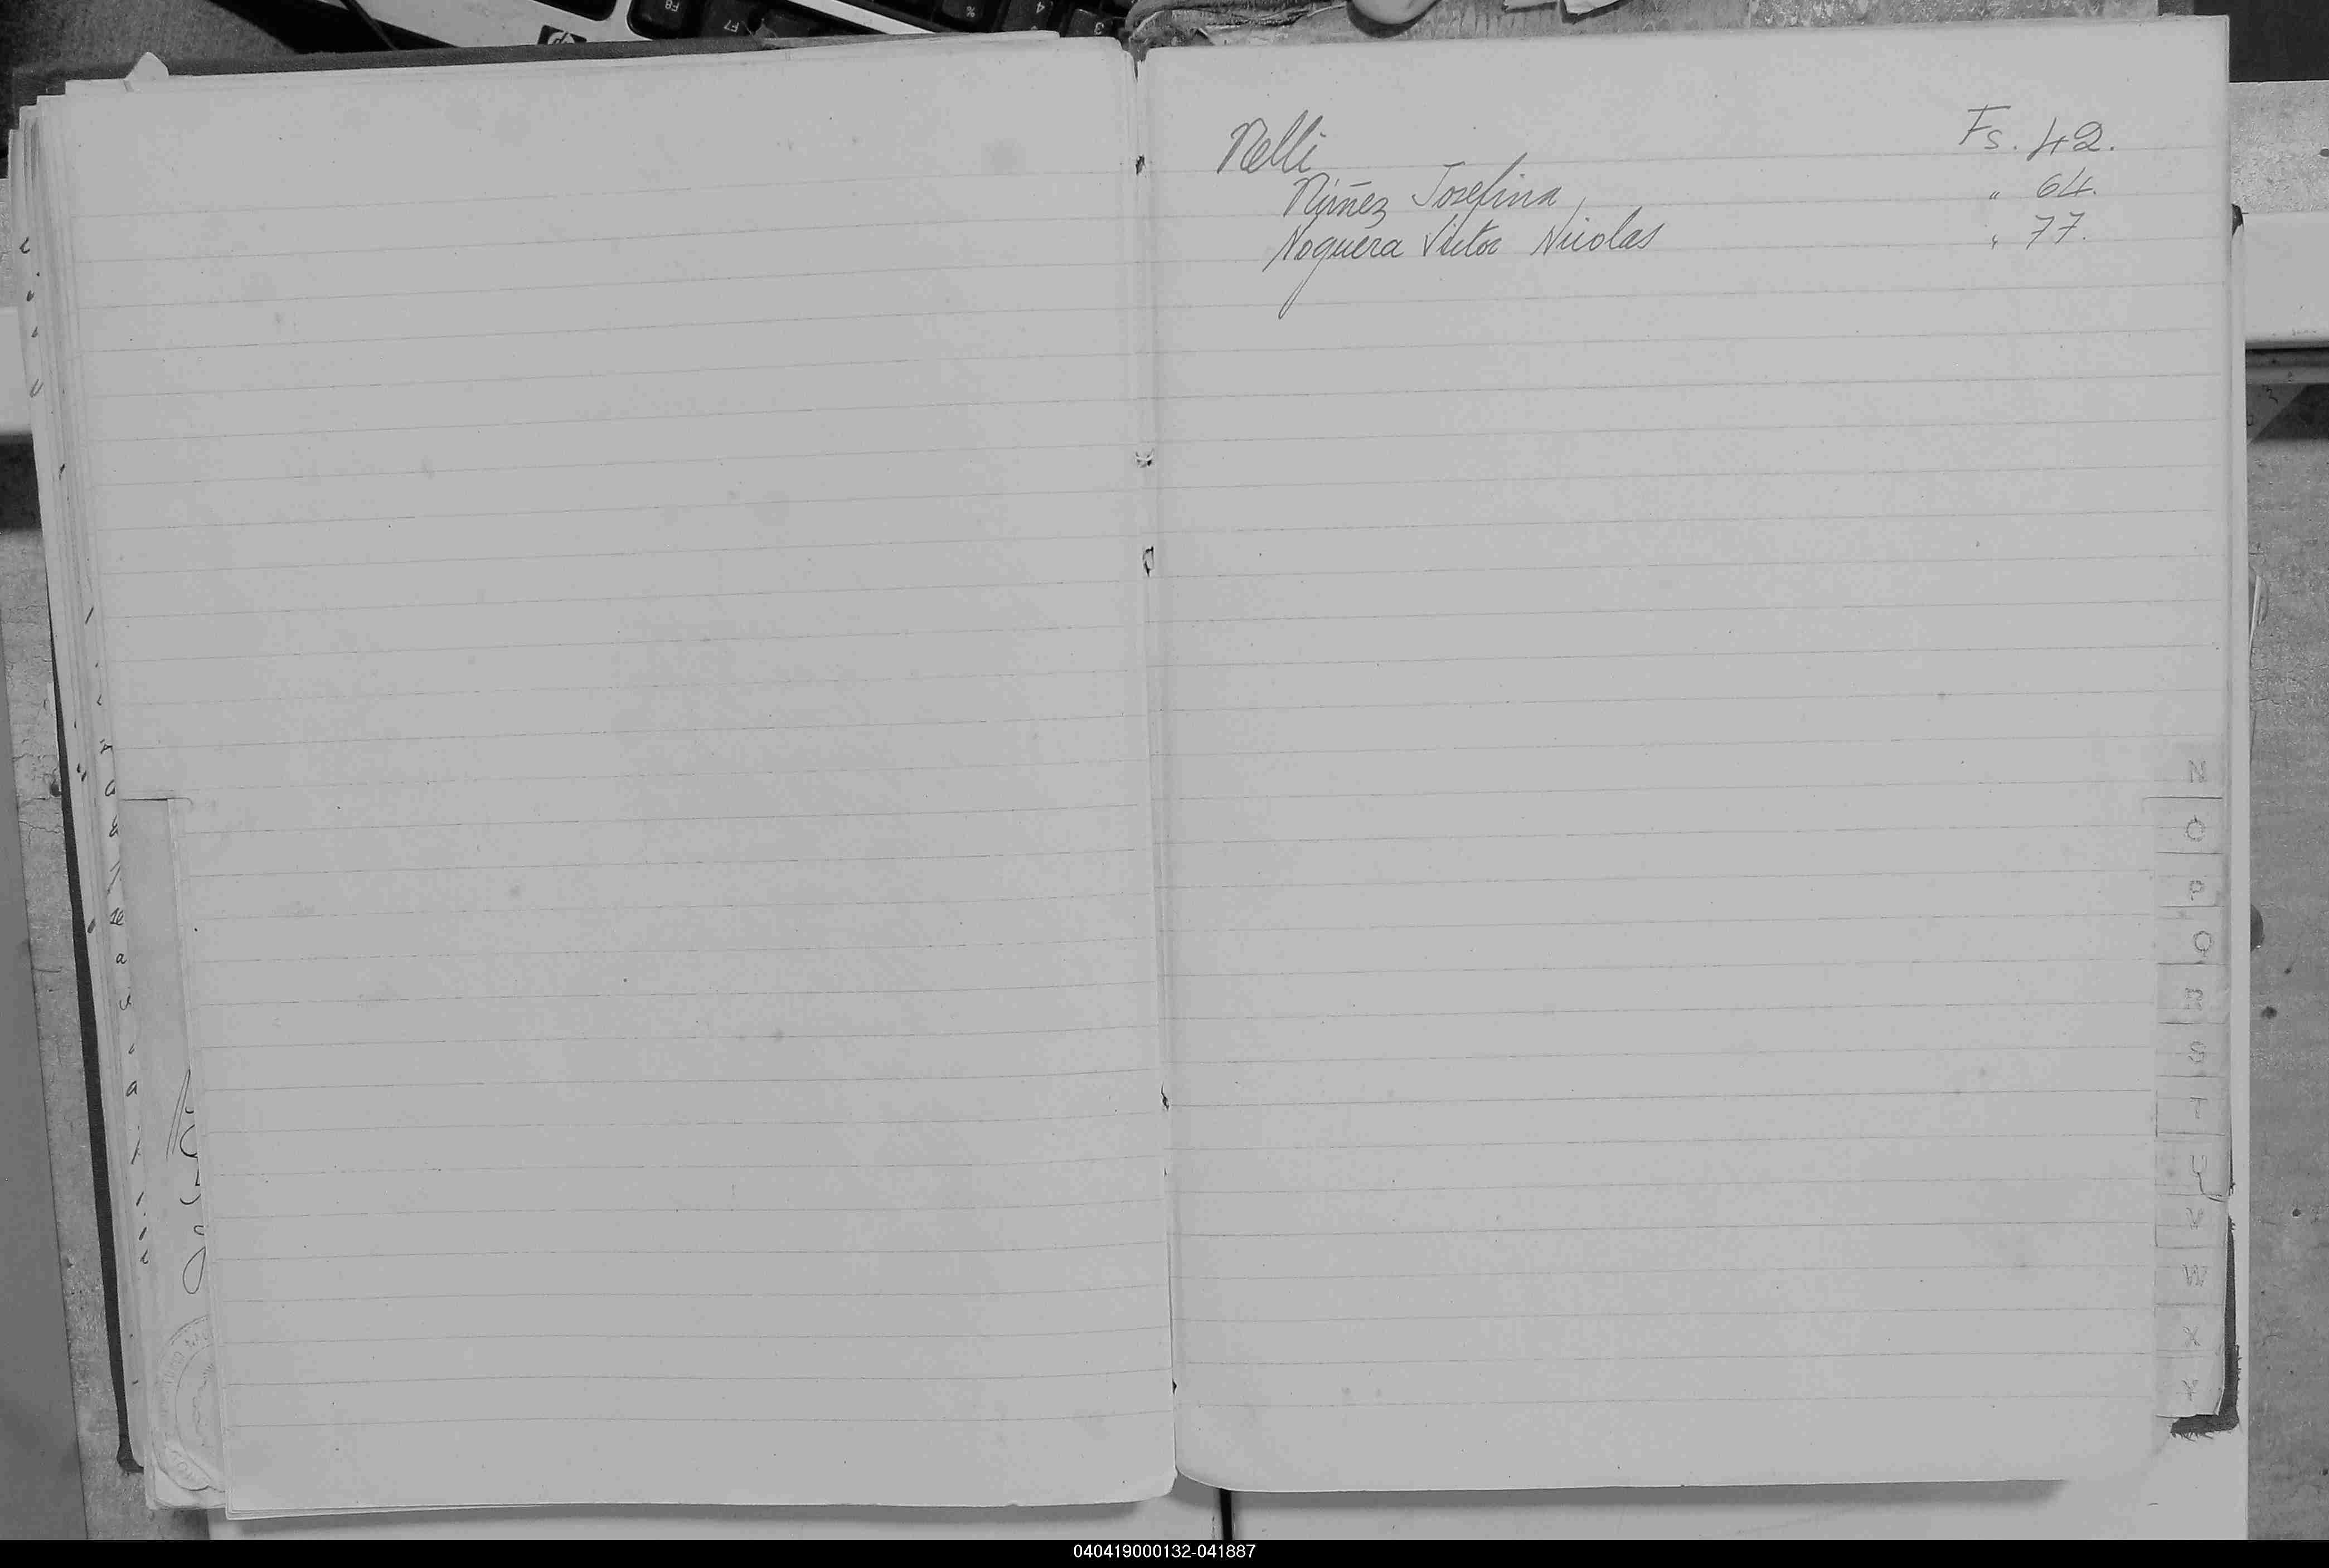 Nelli Fs. 42.
Núñez Josefina " 64.
Noguera Victor Nicolas " 77.
N
O
P
Q
R
S
T
U
V
W
X
Y
040419000132-041887